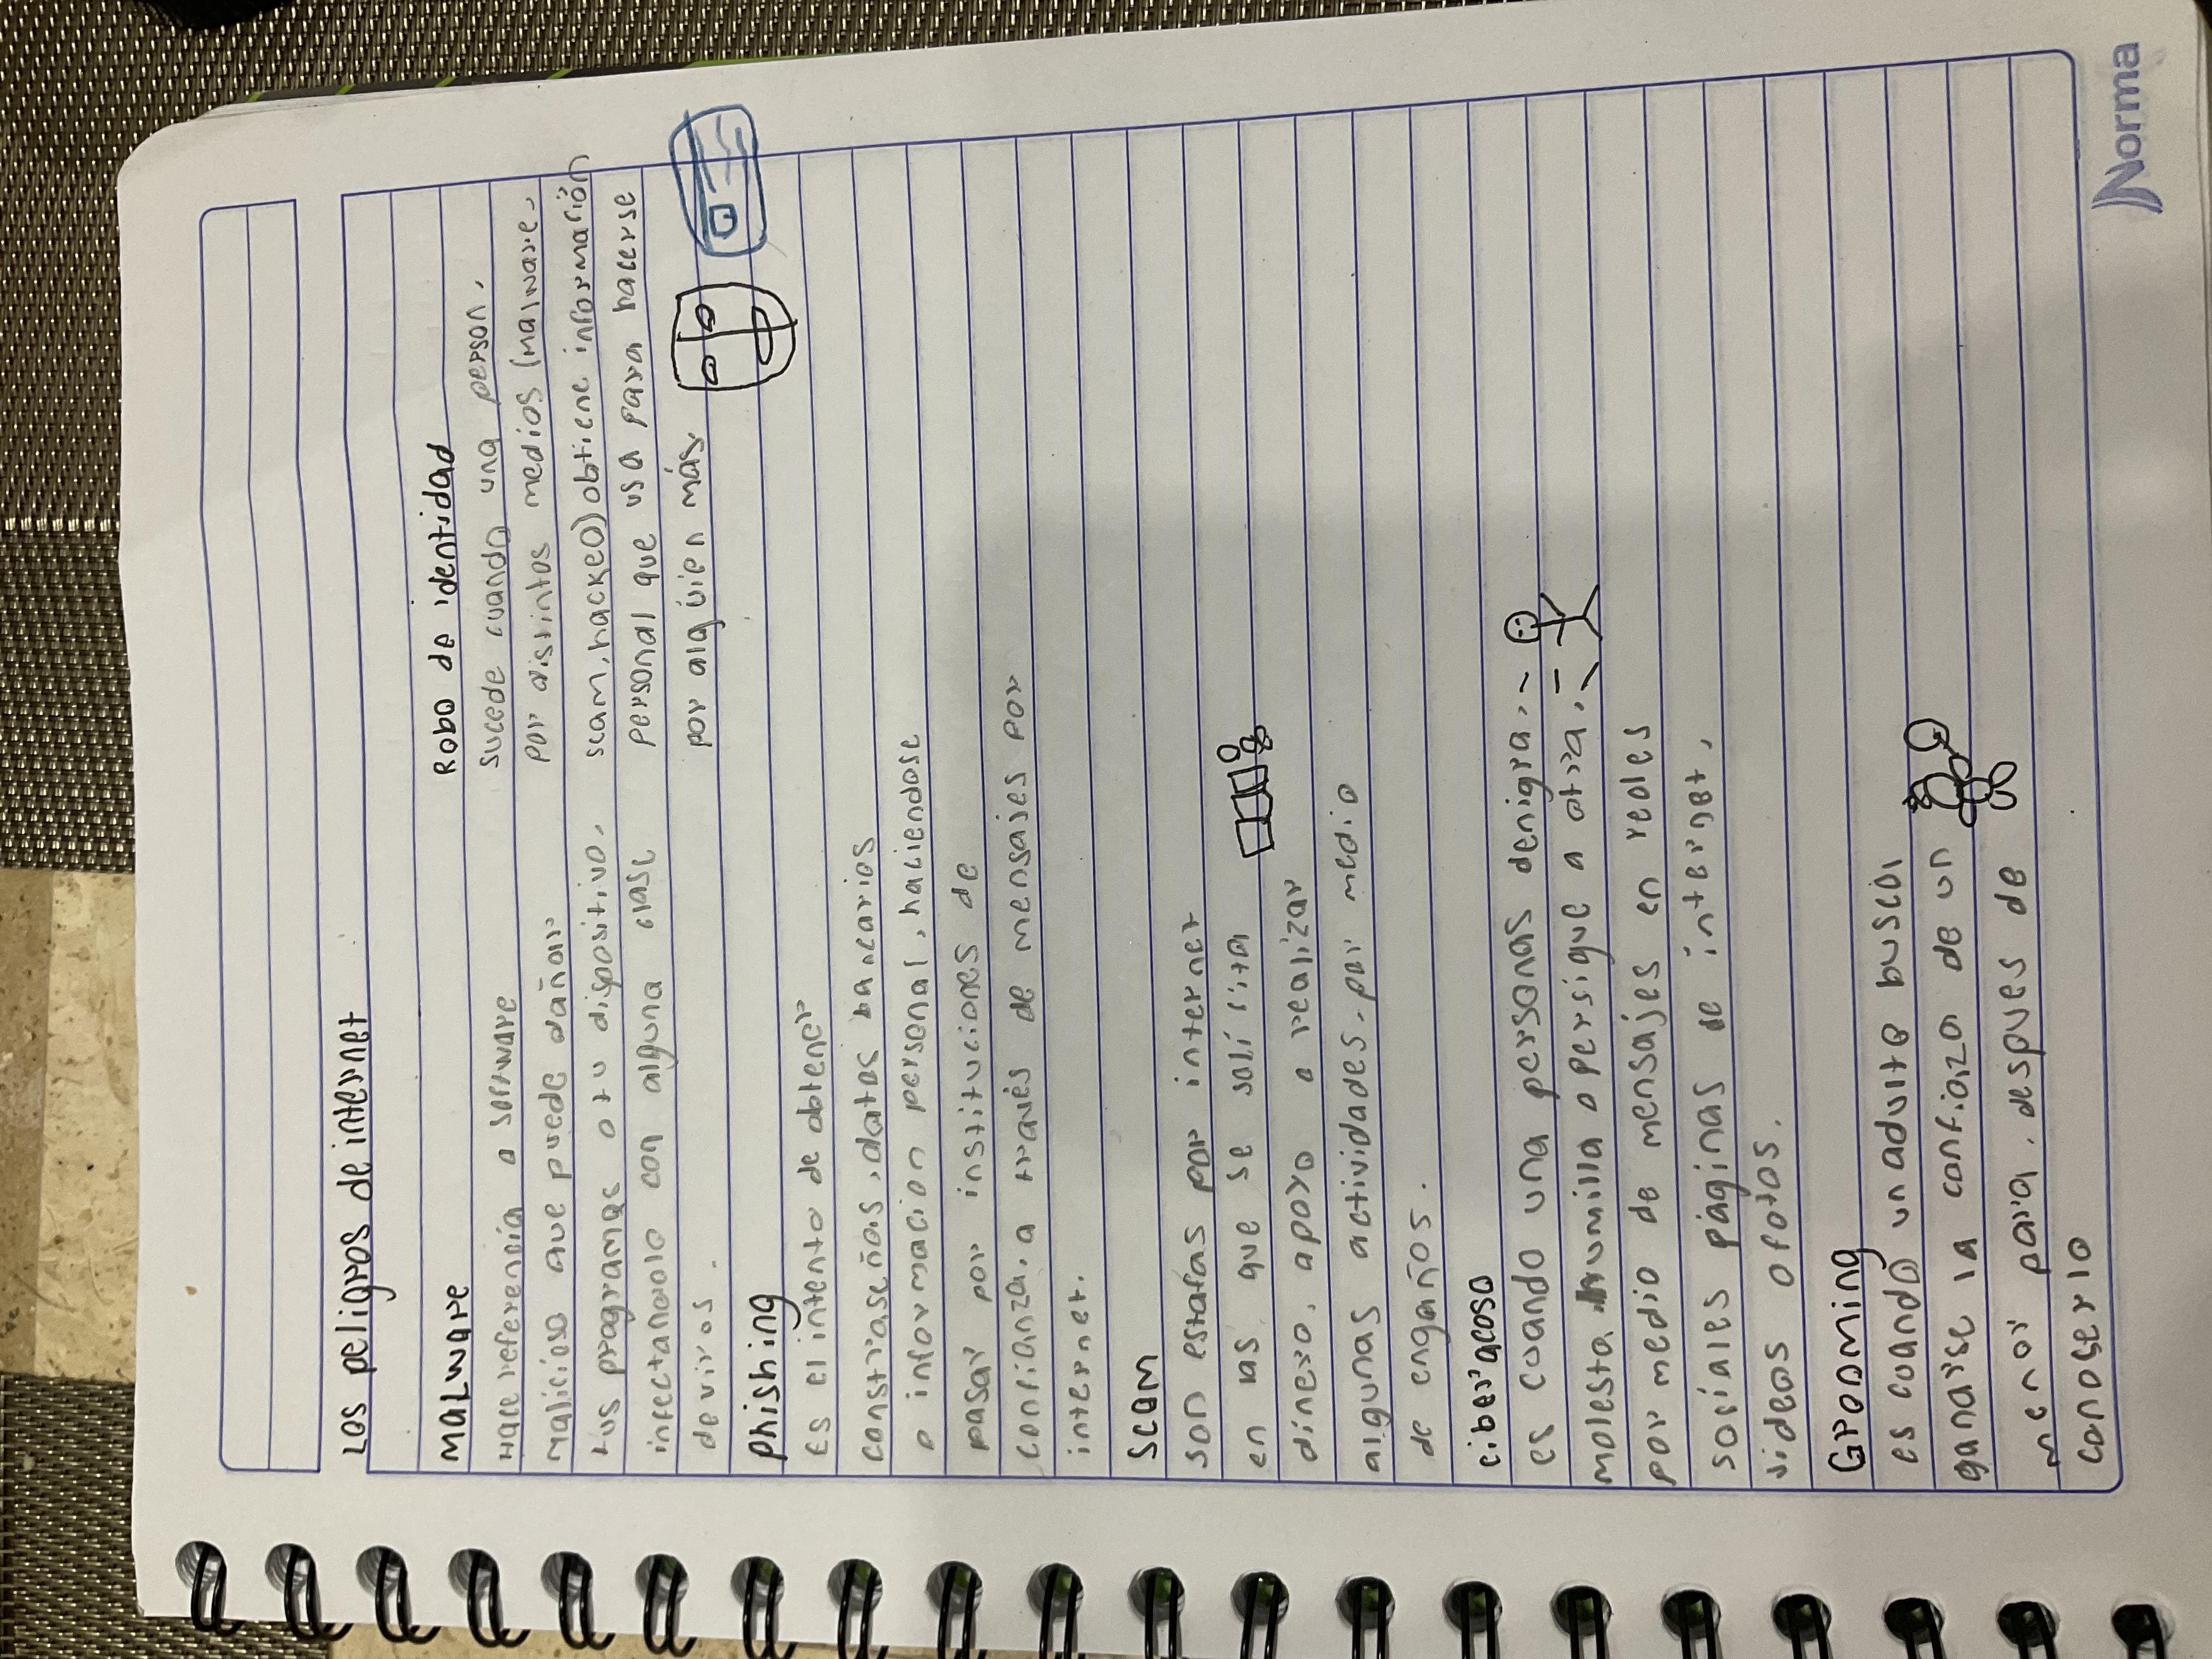 Los peligros de internet
Malware
Hace referencia a software
malicioso que puede dañar
tus programas o tu dispositivo,
infectandolo con alguna clase
de virus.
Robo de identidad
sucede cuando una person,
por distintos medios (malware,
scam, hackeo) obtiene información
personal que usa para hacerse
por alguien más.
Phishing
Es el intento de obtener
constraseñas, datos bancarios
o informacion personal, haciendose
pasar por instituciones de
confianza, a través de mensajes por
internet.
Scam
son estafas por internet
en las que se solicita
dinero, apoyo o realizar
algunas actividades, por medio
de engaños.
ciberacoso
es cuando una personas denigra,
molesta humilla o persigue a otra,
por medio de mensajes en redes
sociales páginas de internet,
videos o fotos.
Grooming
es cuando un adulto busca
ganarse la confiaza de un
menor para, despues de
conoserlo
Norma